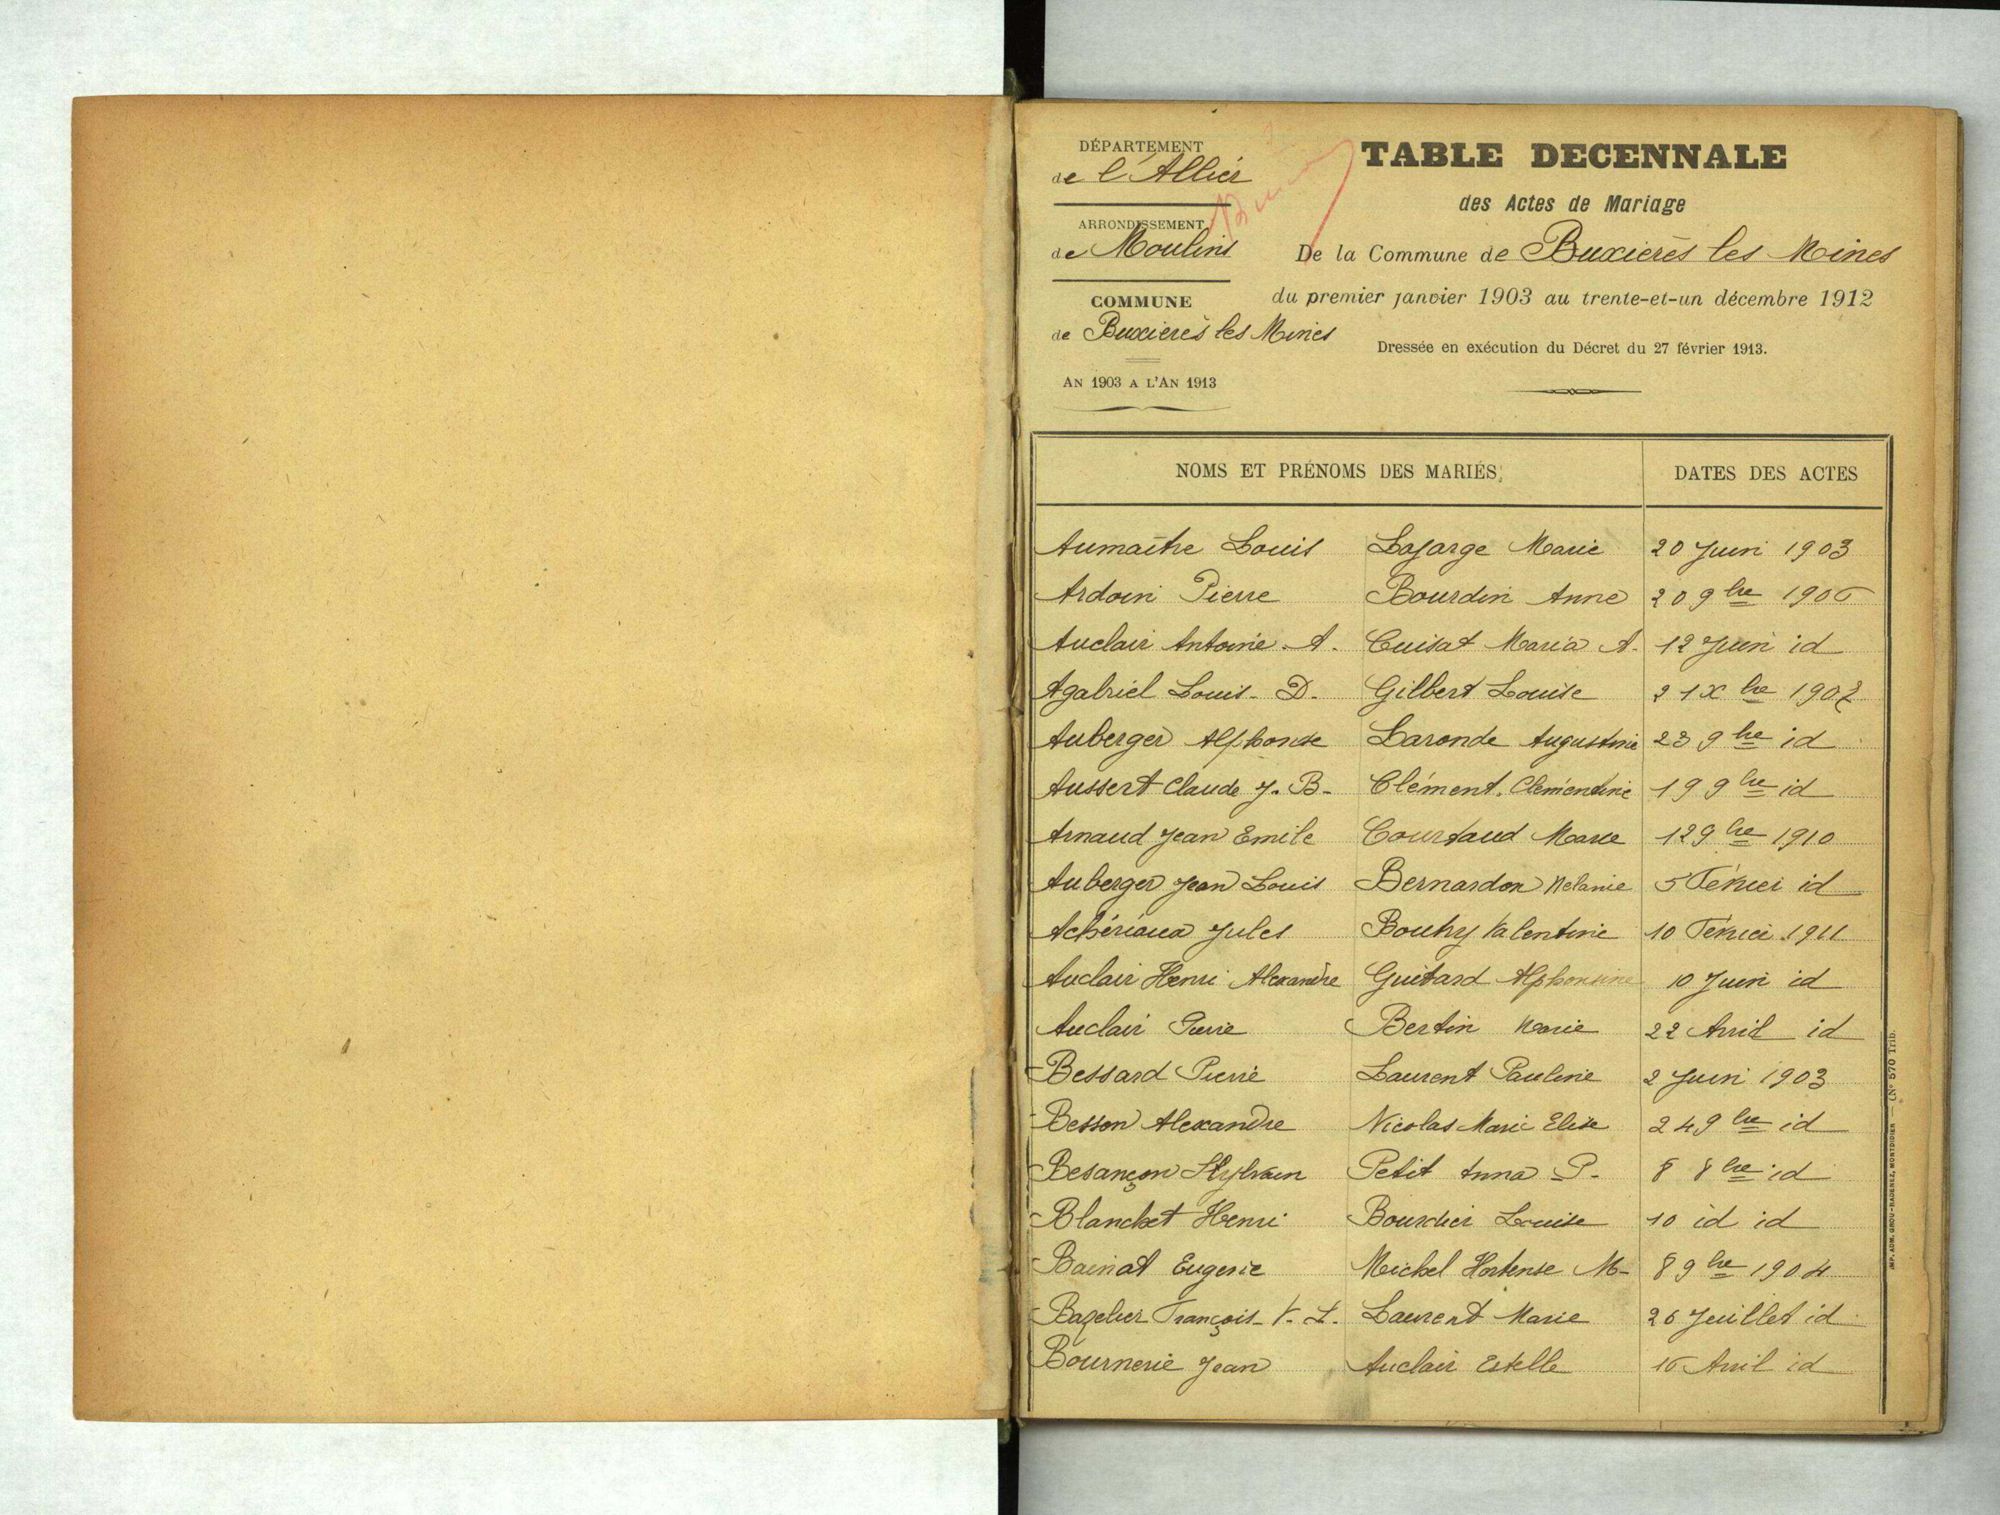 DÉPARTEMENT
de l'Allier
ARRONDISSEMENT
de Moulins
COMMUNE
de Buxières les Mines
AN 1903 A L'AN 1913
TABLE DECENNALE
des Actes de Mariage
De la Commune de Buxières les Mines
du premier janvier 1903 au trente-et-un décembre 1912
Dressée en exécution du Décret du 27 février 1913.
NOMS ET PRÉNOMS DES MARIÉS. DATES DES ACTES
Aumaître Louis Lafarge Marie 20 Juin 1903
Ardoin Pierre Bourdin Anne 20 9bre
Auclair Antoine A. Cuisat Maria A. 12 Juin id
Agabriel Louis D. Gilbert Louise 21 Xbre
Auberger Alphonse Laronde Augustine 23 9bre id
Aussert Claude J. B. Clément Clémentine 19 9bre id
Arnaud Jean Emile Courtaud Marie 12 9bre 1910
Auberger Jean Louis Bernardon Mélanie 5 Février id
Achériaux Jules Bouhy Valentine 10 Février 1911
Auclair Henri Alexandre Guitard Alphonsine 10 Juin id
Auclair Pierre Bertin Marie 22 Avril id
Bessard Pierre Laurent Pauline 2 Juin 1903
Besson Alexandre Nicolas Marie Elise 24 9bre id
Besançon Sylvain Petit Anna P. 8 8bre id
Blanchet Henri Bourdier Louise 10 id id
Bainat Eugenie Michel Hortense M. 8 9bre 1904
Bazelier François V. L. Laurent Marie 26 Juillet id
Bournerie Jean Auclair Estelle 16 Avril id
IMP. ADM. GROU-RADENEZ, MONTDIDIER — (N° 570 Trib.